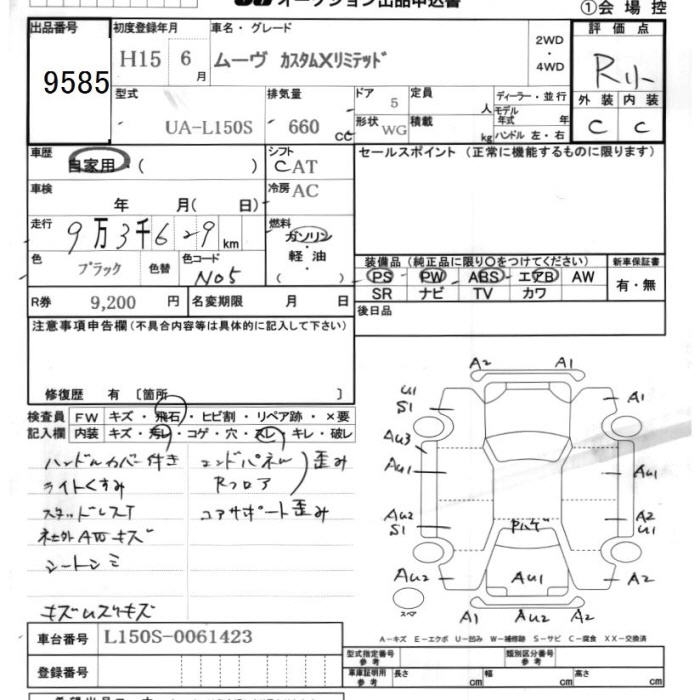 オークション出品申込書
①会 場 控
出品番号
初度登録年月
車名・グレード
2WD
・
4WD
評 価 点
9585
H15 6 月
ムーヴ カスタムXリミテッド
R
型式
排気量
ドア 5
定員 人
ディーラー・並行
モデル年式 年
外 装 内 装
UA-L150S
660 cc
形状 WG
積載 kg
ハンドル 左・右
C C
車歴
自家用・( )
シフト
CAT
セールスポイント (正常に機能するものに限ります)
車検
年 月( 日)
冷房 AC
走行
9万3千629km
燃料
ガソリン
・
軽油
( )
色
ブラック
色替
色コード
No5
装備品(純正品に限り○をつけてください)
新車保証書
PS PW ABS エアB AW
SR ナビ TV カワ
有・無
R券 9,200 円
名変期限 月 日
後日品
注意事項申告欄(不具合内容等は具体的に記入して下さい)
修復歴 有 〔箇所 〕
検査員 FW キズ・飛石・ヒビ割・リペア跡・×要
記入欄 内装 キズ・汚レ・コゲ・穴・スレ・キレ・破レ
ハンドルカバー付き
ライトくすみ
スタッドレスT
社外AWキズ
シートシミ
キズムスリキズ
エンドパネル
Rフロア
歪み
コアサポート歪み
A2 A1
U1
S1
A1
Au3
Au1
Au1
Au2
S1
A2
U1
Pハゲ
Au2
Au1
A2
スペア
A1 Au2 A2
A-キズ E-エクボ U-凹み W-補修跡 S-サビ C-腐食 XX-交換済
車台番号 L150S-0061423
型式指定番号
参考
類別区分番号
参考
登録番号
車庫証明用
参考
長さ cm
幅 cm
高さ cm